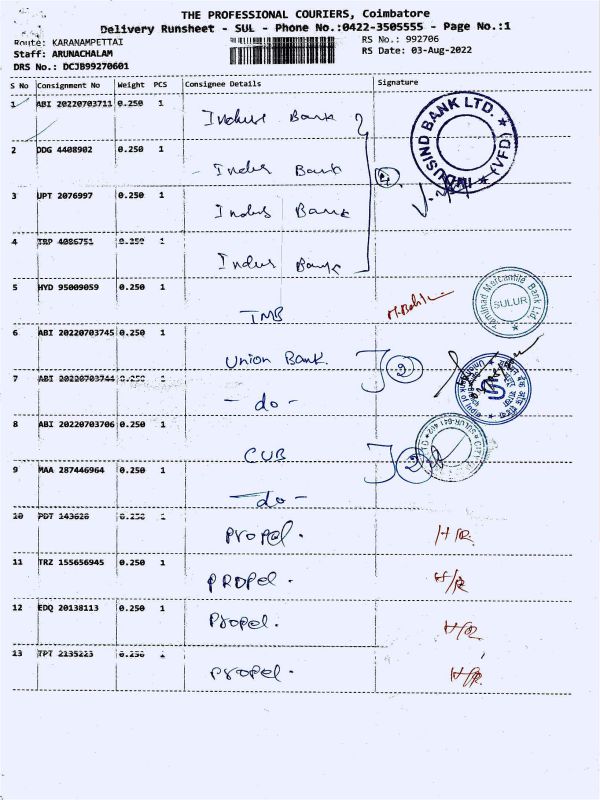 THE PROFESSIONAL COURIERS, Coimbatore
Delivery Runsheet - SUL - Phone No.:0422-3505555 - Page No.:1
Route: KARANAMPETTAI
RS No.: 992706
Staff: ARUNACHALAM
RS Date: 03-Aug-2022
DRS No.: DCJB99270601
S No Consignment No Weight PCS Consignee Details Signature
1 ABI 20220703711 0.250 1 Indus Bank
INDUSIND BANK LTD. (VFD)
2 DDG 4408902 0.250 1 Indus Bank 4
3 UPT 2076997 0.250 1 Indus Bank
4 TRP 4086751 0.250 1 Indus Bank
5 HYD 95009059 0.250 1 TMB
Tamilnad Mercantile Bank Ltd SULUR
6 ABI 20220703745 0.250 1 Union Bank. 2
7 ABI 20220703744 0.250 1 - do -
8 ABI 20220703706 0.250 1 CUB 2
9 MAA 287446964 0.250 1 - do -
10 PDT 143626 0.250 1 Propel. H/R
11 TRZ 155656945 0.250 1 PROPel. H/R
12 EDQ 20138113 0.250 1 Propel. H/R
13 TPT 2135223 0.250 1 Propel. H/R.